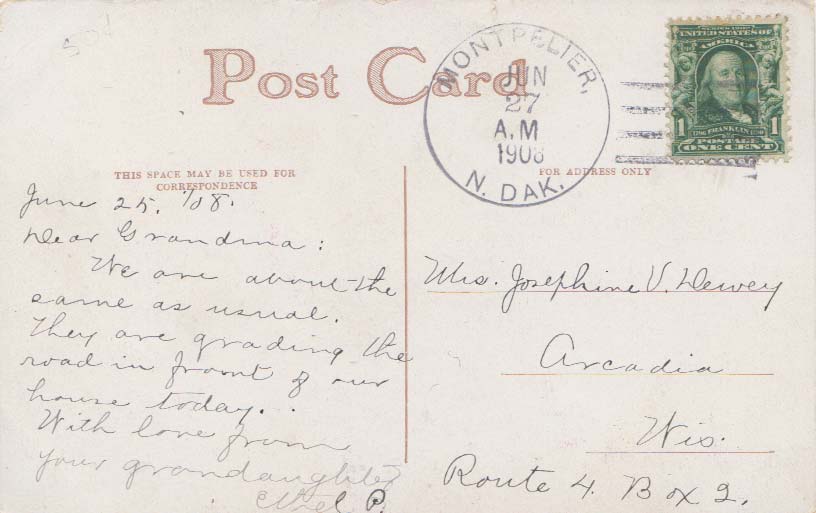 Post Card
MONTPELIER,
JUN
27
A.M
1908
N. DAK.
SERIES 1902
UNITED STATES OF
AMERICA
1 1706 FRANKLIN 1790 1
POSTAGE
ONE CENT
THIS SPACE MAY BE USED FOR
CORRESPONDENCE
FOR ADDRESS ONLY
June 25, '08.
Dear Grandma:
We are about the
same as usual.
They are grading the
road in front of our
house today..
With love from
your grandaughter
Ethel P.
Mrs. Josephine V. Dewey
Arcadia
Wis.
Route 4. Box 2.